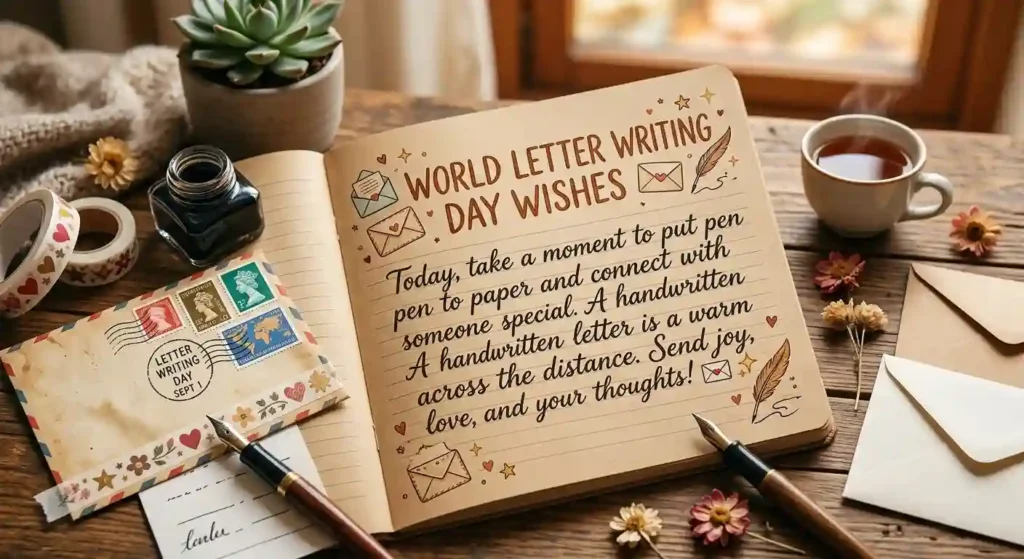 WORLD LETTER WRITING
DAY WISHES
Today, take a moment to put pen
pen to paper and connect with
someone special. A handwritten
A handwritten letter is a warm
across the distance. Send joy,
love, and your thoughts!
LETTER
WRITING
DAY
SEPT 1